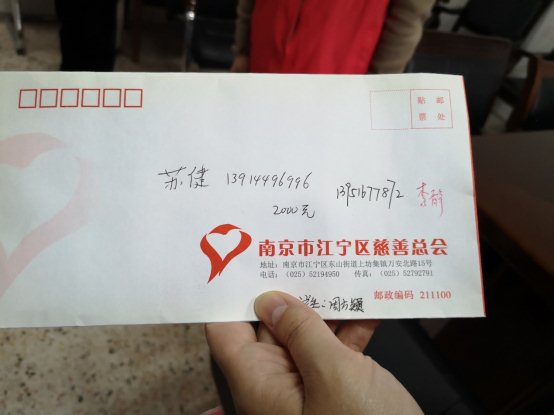 贴 邮
票 处
苏健 13914496996
13951677872
2000元
南京市江宁区慈善总会
地址：南京市江宁区东山街道上坊集镇万安北路15号
电话：（025）52194950 传真：（025）52792791
邮政编码 211100
周方颖